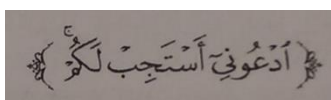 ﴿ ٱدْعُونِيٓ أَسْتَجِبْ لَكُمْۚ ﴾